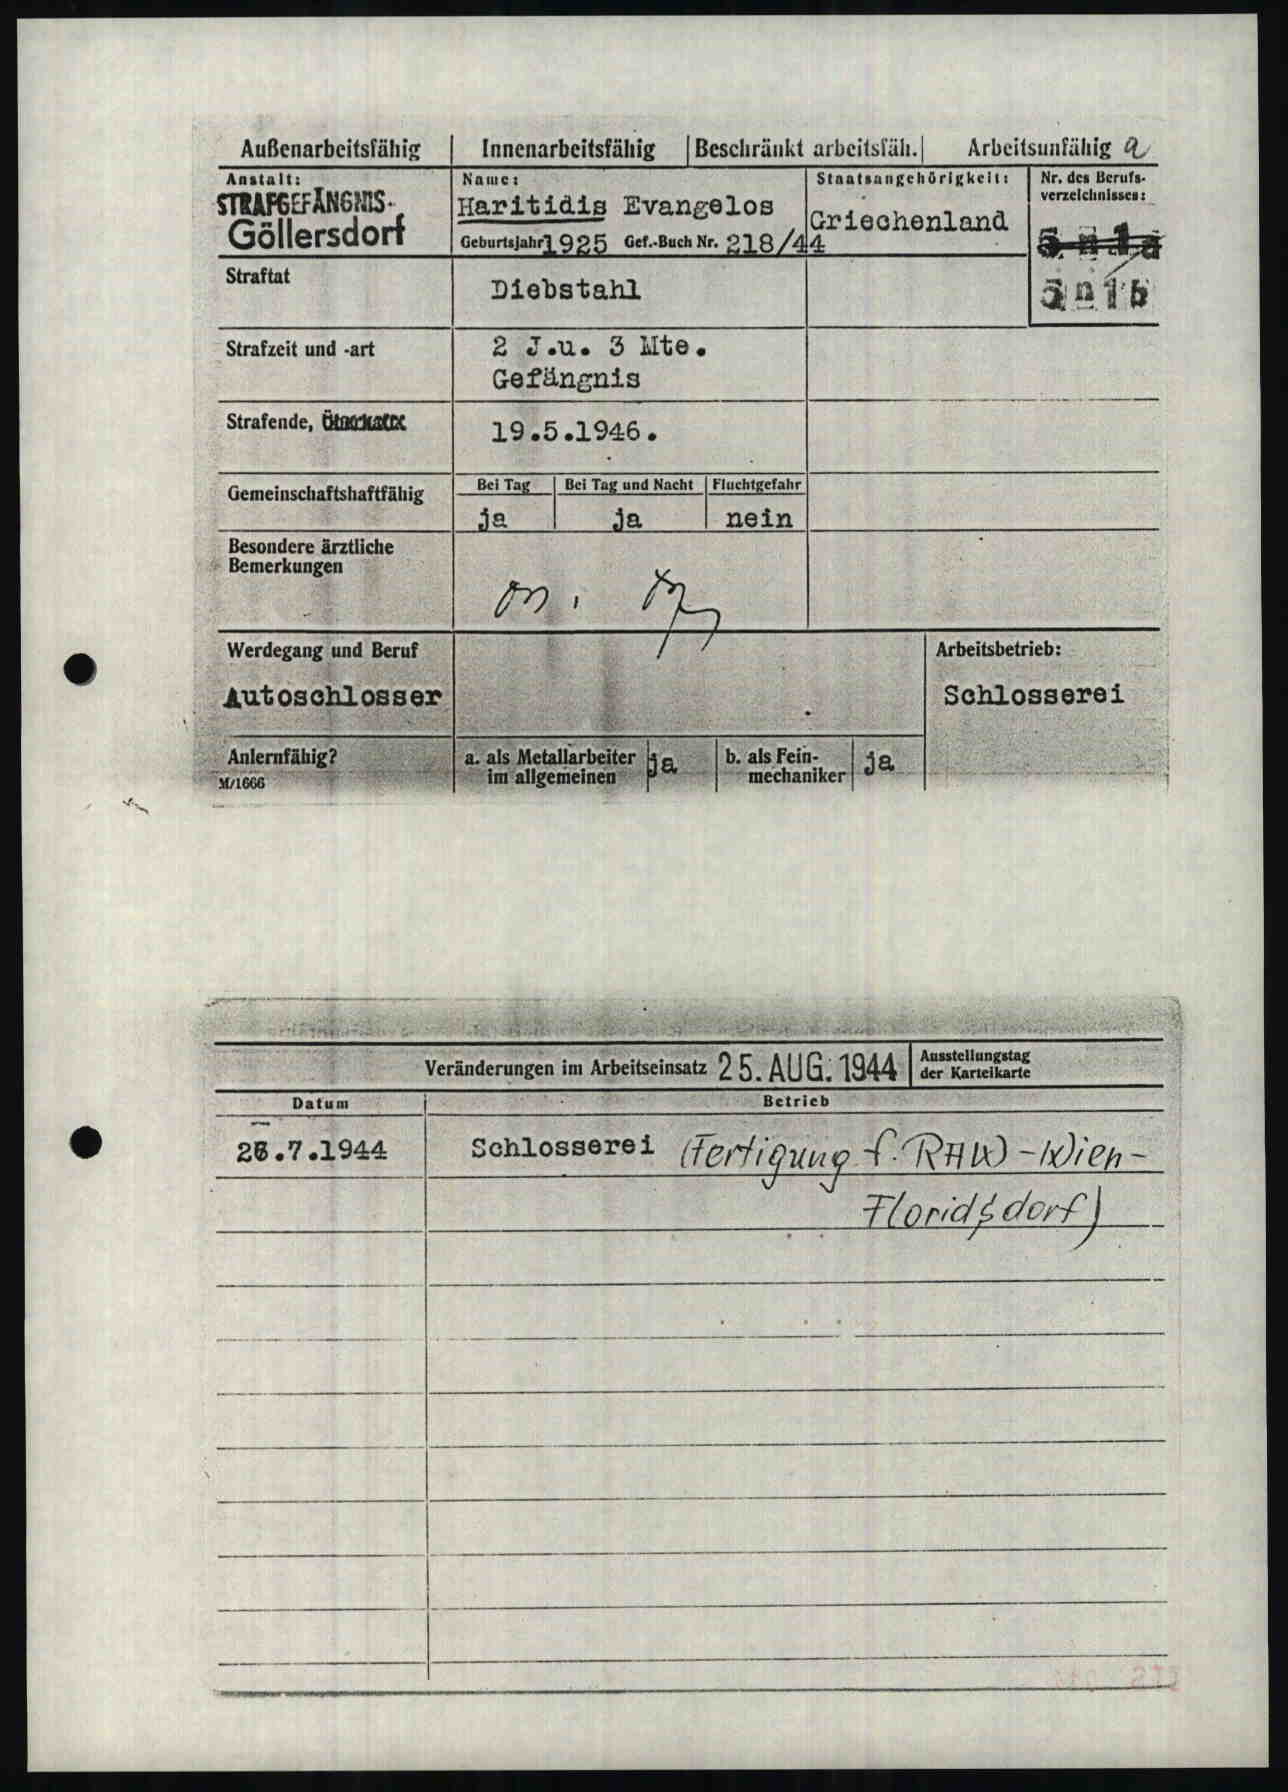 Außenarbeitsfähig Innenarbeitsfähig Beschränkt arbeitsfäh. Arbeitsunfähig a
Anstalt: Name: Staatsangehörigkeit: Nr. des Berufs-
verzeichnisses:
STRAFGEFÄNGNIS- Haritidis Evangelos Griechenland
Göllersdorf Geburtsjahr 1925 Gef.-Buch Nr. 218/44 5 n 1a
5 n 1b
Straftat Diebstahl
Strafzeit und -art 2 J.u. 3 Mte.
Gefängnis
Strafende, 19.5.1946.
Gemeinschaftshaftfähig Bei Tag Bei Tag und Nacht Fluchtgefahr
ja ja nein
Besondere ärztliche
Bemerkungen
Werdegang und Beruf Arbeitsbetrieb:
Autoschlosser Schlosserei
Anlernfähig? a. als Metallarbeiter ja b. als Fein- ja
im allgemeinen mechaniker
M/1666
Veränderungen im Arbeitseinsatz 25. AUG. 1944 Ausstellungstag
der Karteikarte
Datum Betrieb
.7.1944 Schlosserei (Fertigung f. RAW-Wien-
Floridsdorf)